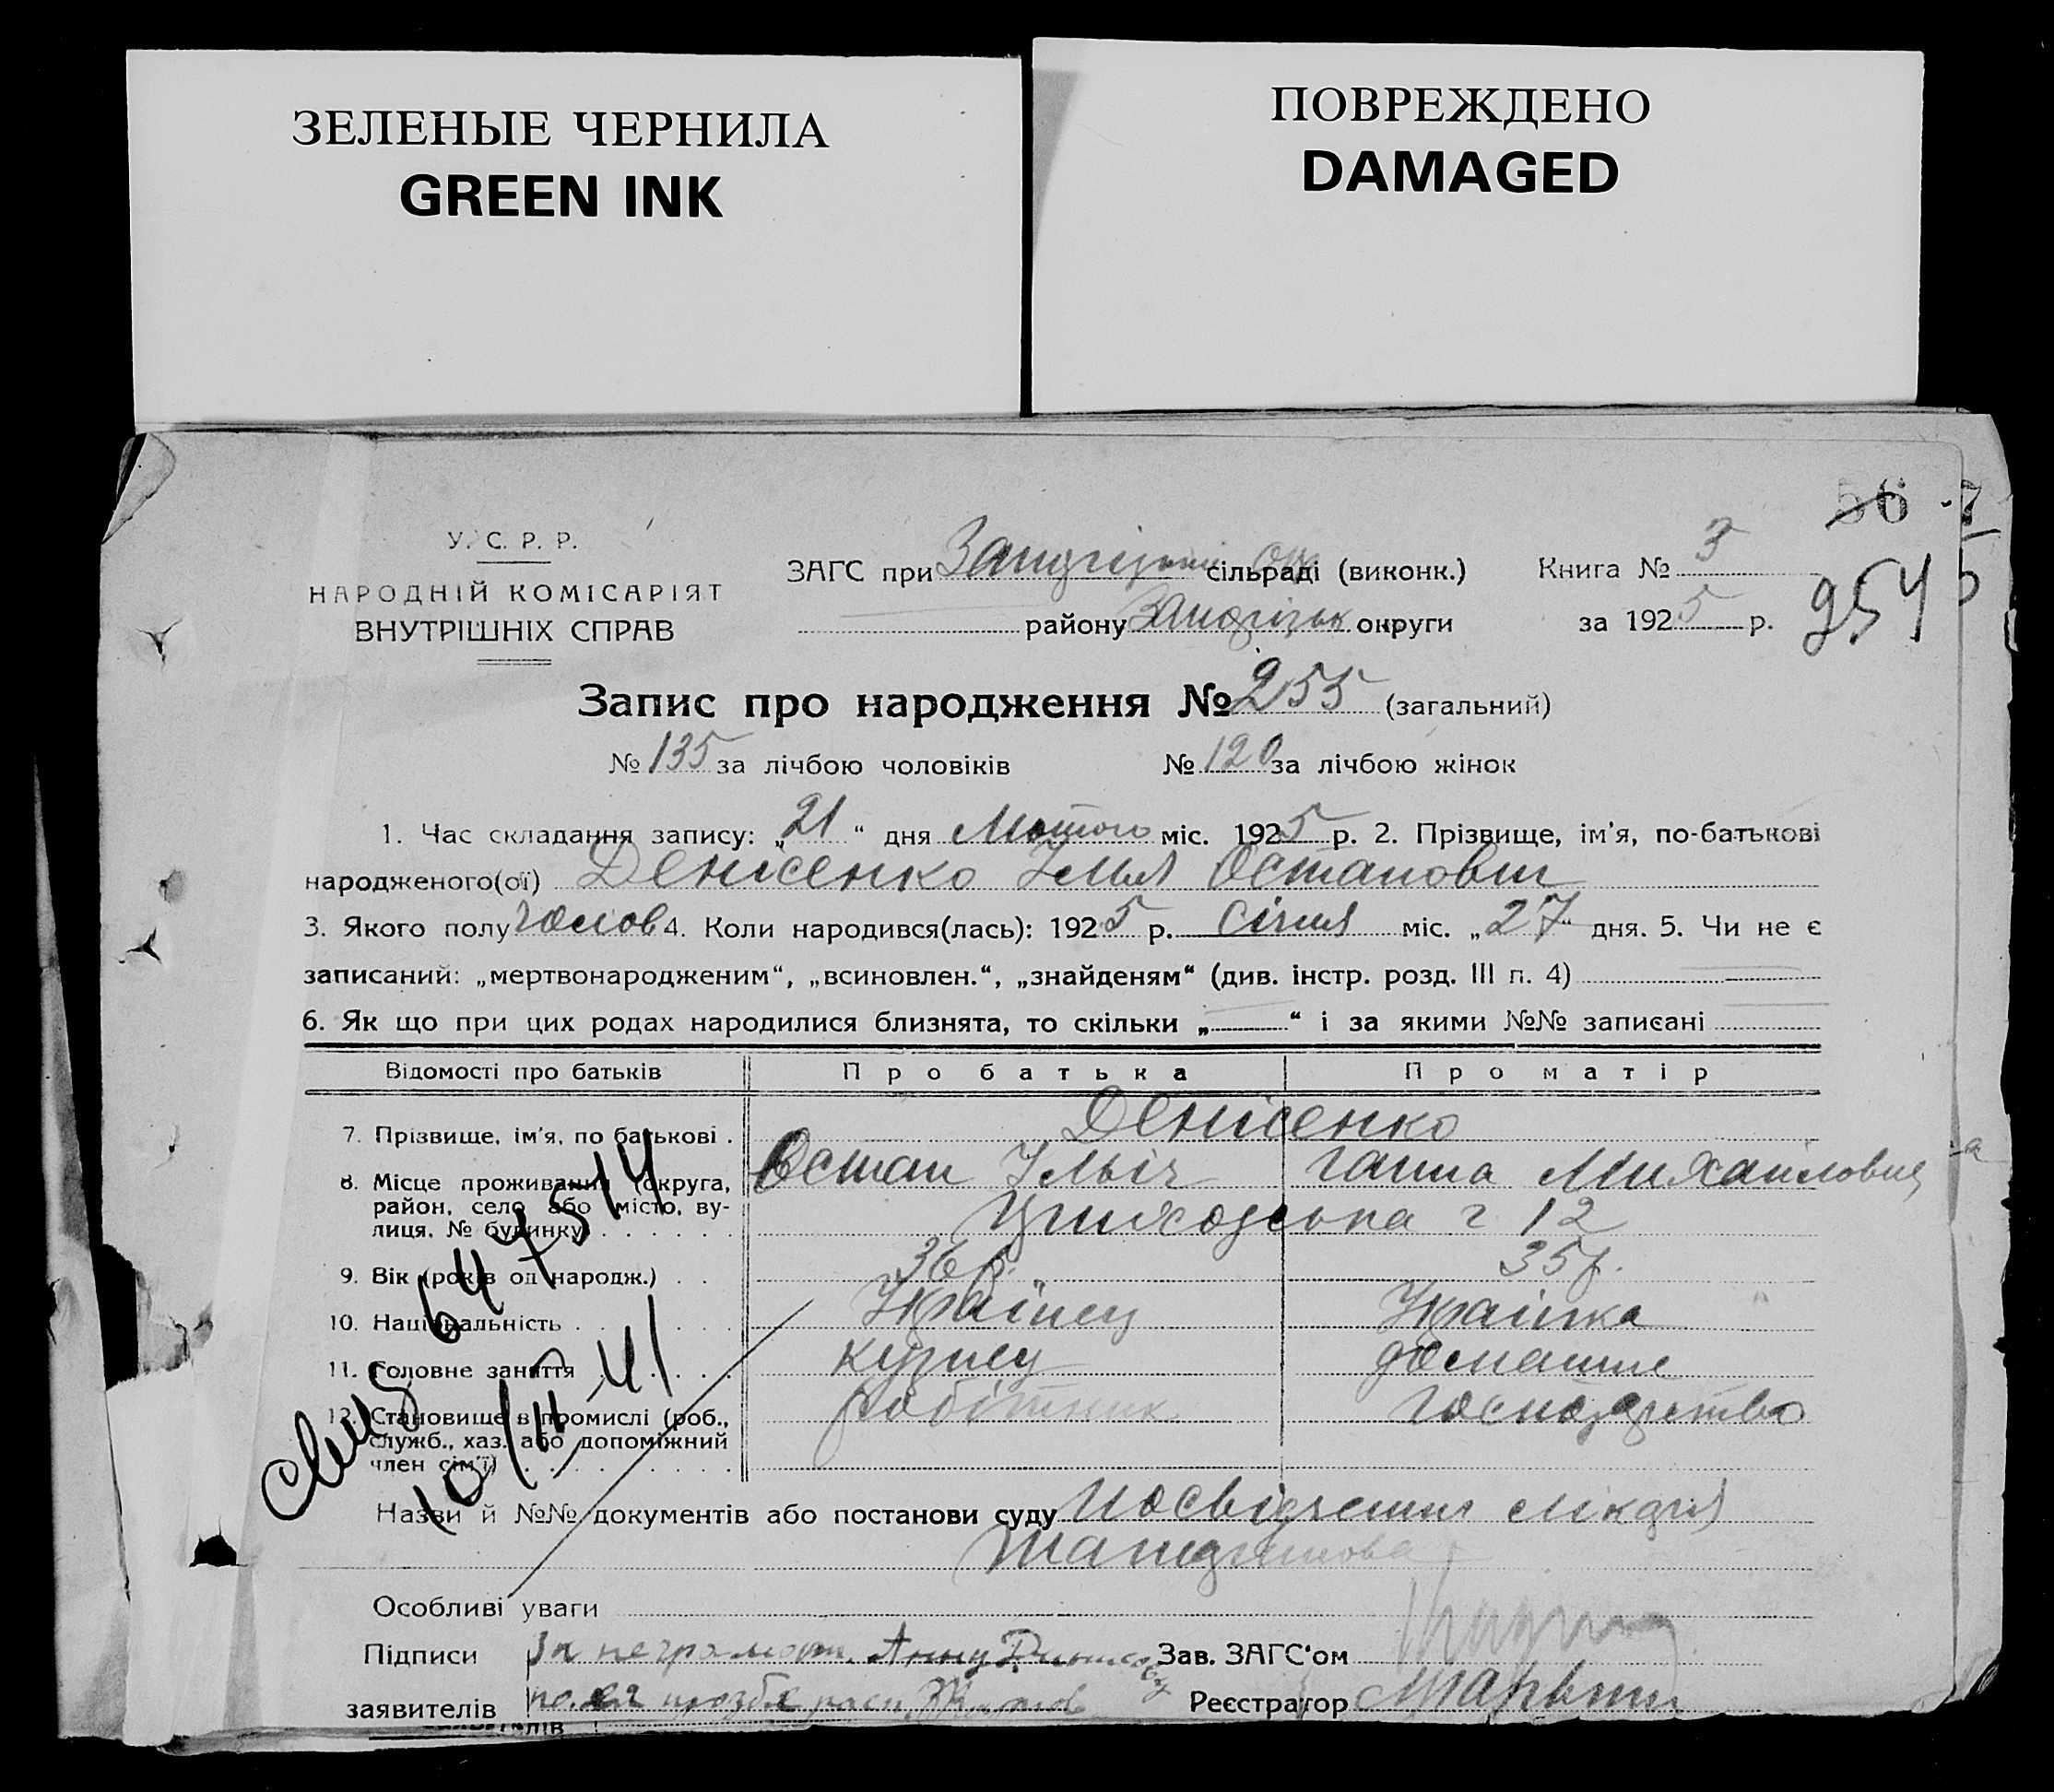 ЗЕЛЕНЫЕ ЧЕРНИЛА
GREEN INK
ПОВРЕЖДЕНО
DAMAGED
56 7
У. С. Р. Р.
НАРОДНІЙ КОМІСАРІЯТ
ВНУТРІШНІХ СПРАВ
ЗАГС при сільраді (виконк.)
району округи
Книга № 3
за 1925 р.
254
Запис про народження № 255 (загальний)
№ 135 за лічбою чоловіків № 120 за лічбою жінок
1. Час складання запису: „21“ дня Лютого міс. 1925 р. 2. Прізвище, ім'я, по-батькові
народженого(ої) Денісенко Ілья Остапович
3. Якого полу чолов 4. Коли народився(лась): 1925 р. Січня міс. „27“ дня. 5. Чи не є
записаний: „мертвонародженим“, „всиновлен.“, „знайденям“ (див. інстр. розд. III п. 4)
6. Як що при цих родах народилися близнята, то скільки „ “ і за якими №№ записані
Відомості про батьків Про батька Про матір
7. Прізвище, ім'я, по батькові . Денісенко
Остап Ільіч Ганна Михайловна
8. Місце проживання (округа,
район, село або місто, ву-
лиця, № будинку) 12
9. Вік (років од народж.) . . 36 р. 35 р.
10. Національність Українец Українка
11. Головне заняття домашне
12. Становище в промислі (роб.,
служб., хаз. або допоміжний
член сім'ї) робітник господарство
647514
10/II 41
Назви й №№ документів або постанови суду Посвідчення лікаря
Особливі уваги
Підписи За неграмотн. Анну Зав. ЗАГС'ом
заявителів по ея прозбе расп. Реєстратор